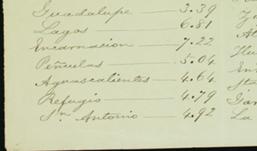 Guadalupe — 3.39
Lagos — 6.81
Encarnacion — 7.22
Peñuelas — 5.04
Aguascalientes — 4.64
Refugio — 4.79
Sn Antonio — 4.92
La